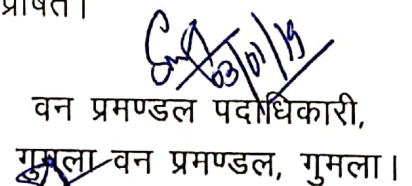 प्रेषित।
03/01/19
वन प्रमण्डल पदाधिकारी,
गुमला वन प्रमण्डल, गुमला।